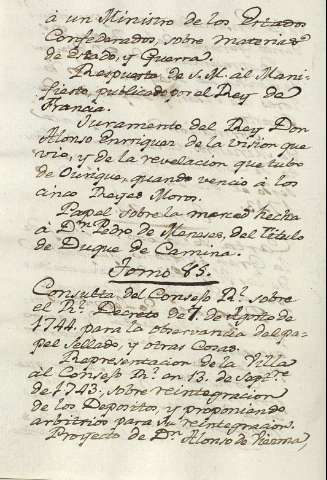 à un Ministro de los Estados
Confederados, sobre materias
de Estado, y Guerra.
Respuesta de S. M. al Mani-
fiesto, publicado por el Rey de
Francia.
Juramento del Rey Don
Alonso Enrriquez de la vision que
vio, y de la revelacion que tubo
de Ourique, quando venciò à los
cinco Reyes Moros.
Papel sobre la merced hecha
à Dn. Pedro de Meneses, del Titulo
de Duque de Camina.
Tomo 85.
Consulta del Consejo Rl. sobre
el Rl. Decreto de 7 de Agosto de
1744. para la observancia del pa-
pel Sellado, y otras Cosas.
Representacion de la Villa
al Consejo Rl. en 13. de Sepre.
de 1743, sobre reintegracion
de los Depositos, y proponiendo
arbitrios para su reintegracion.
Proyecto de Dn. Alonso de